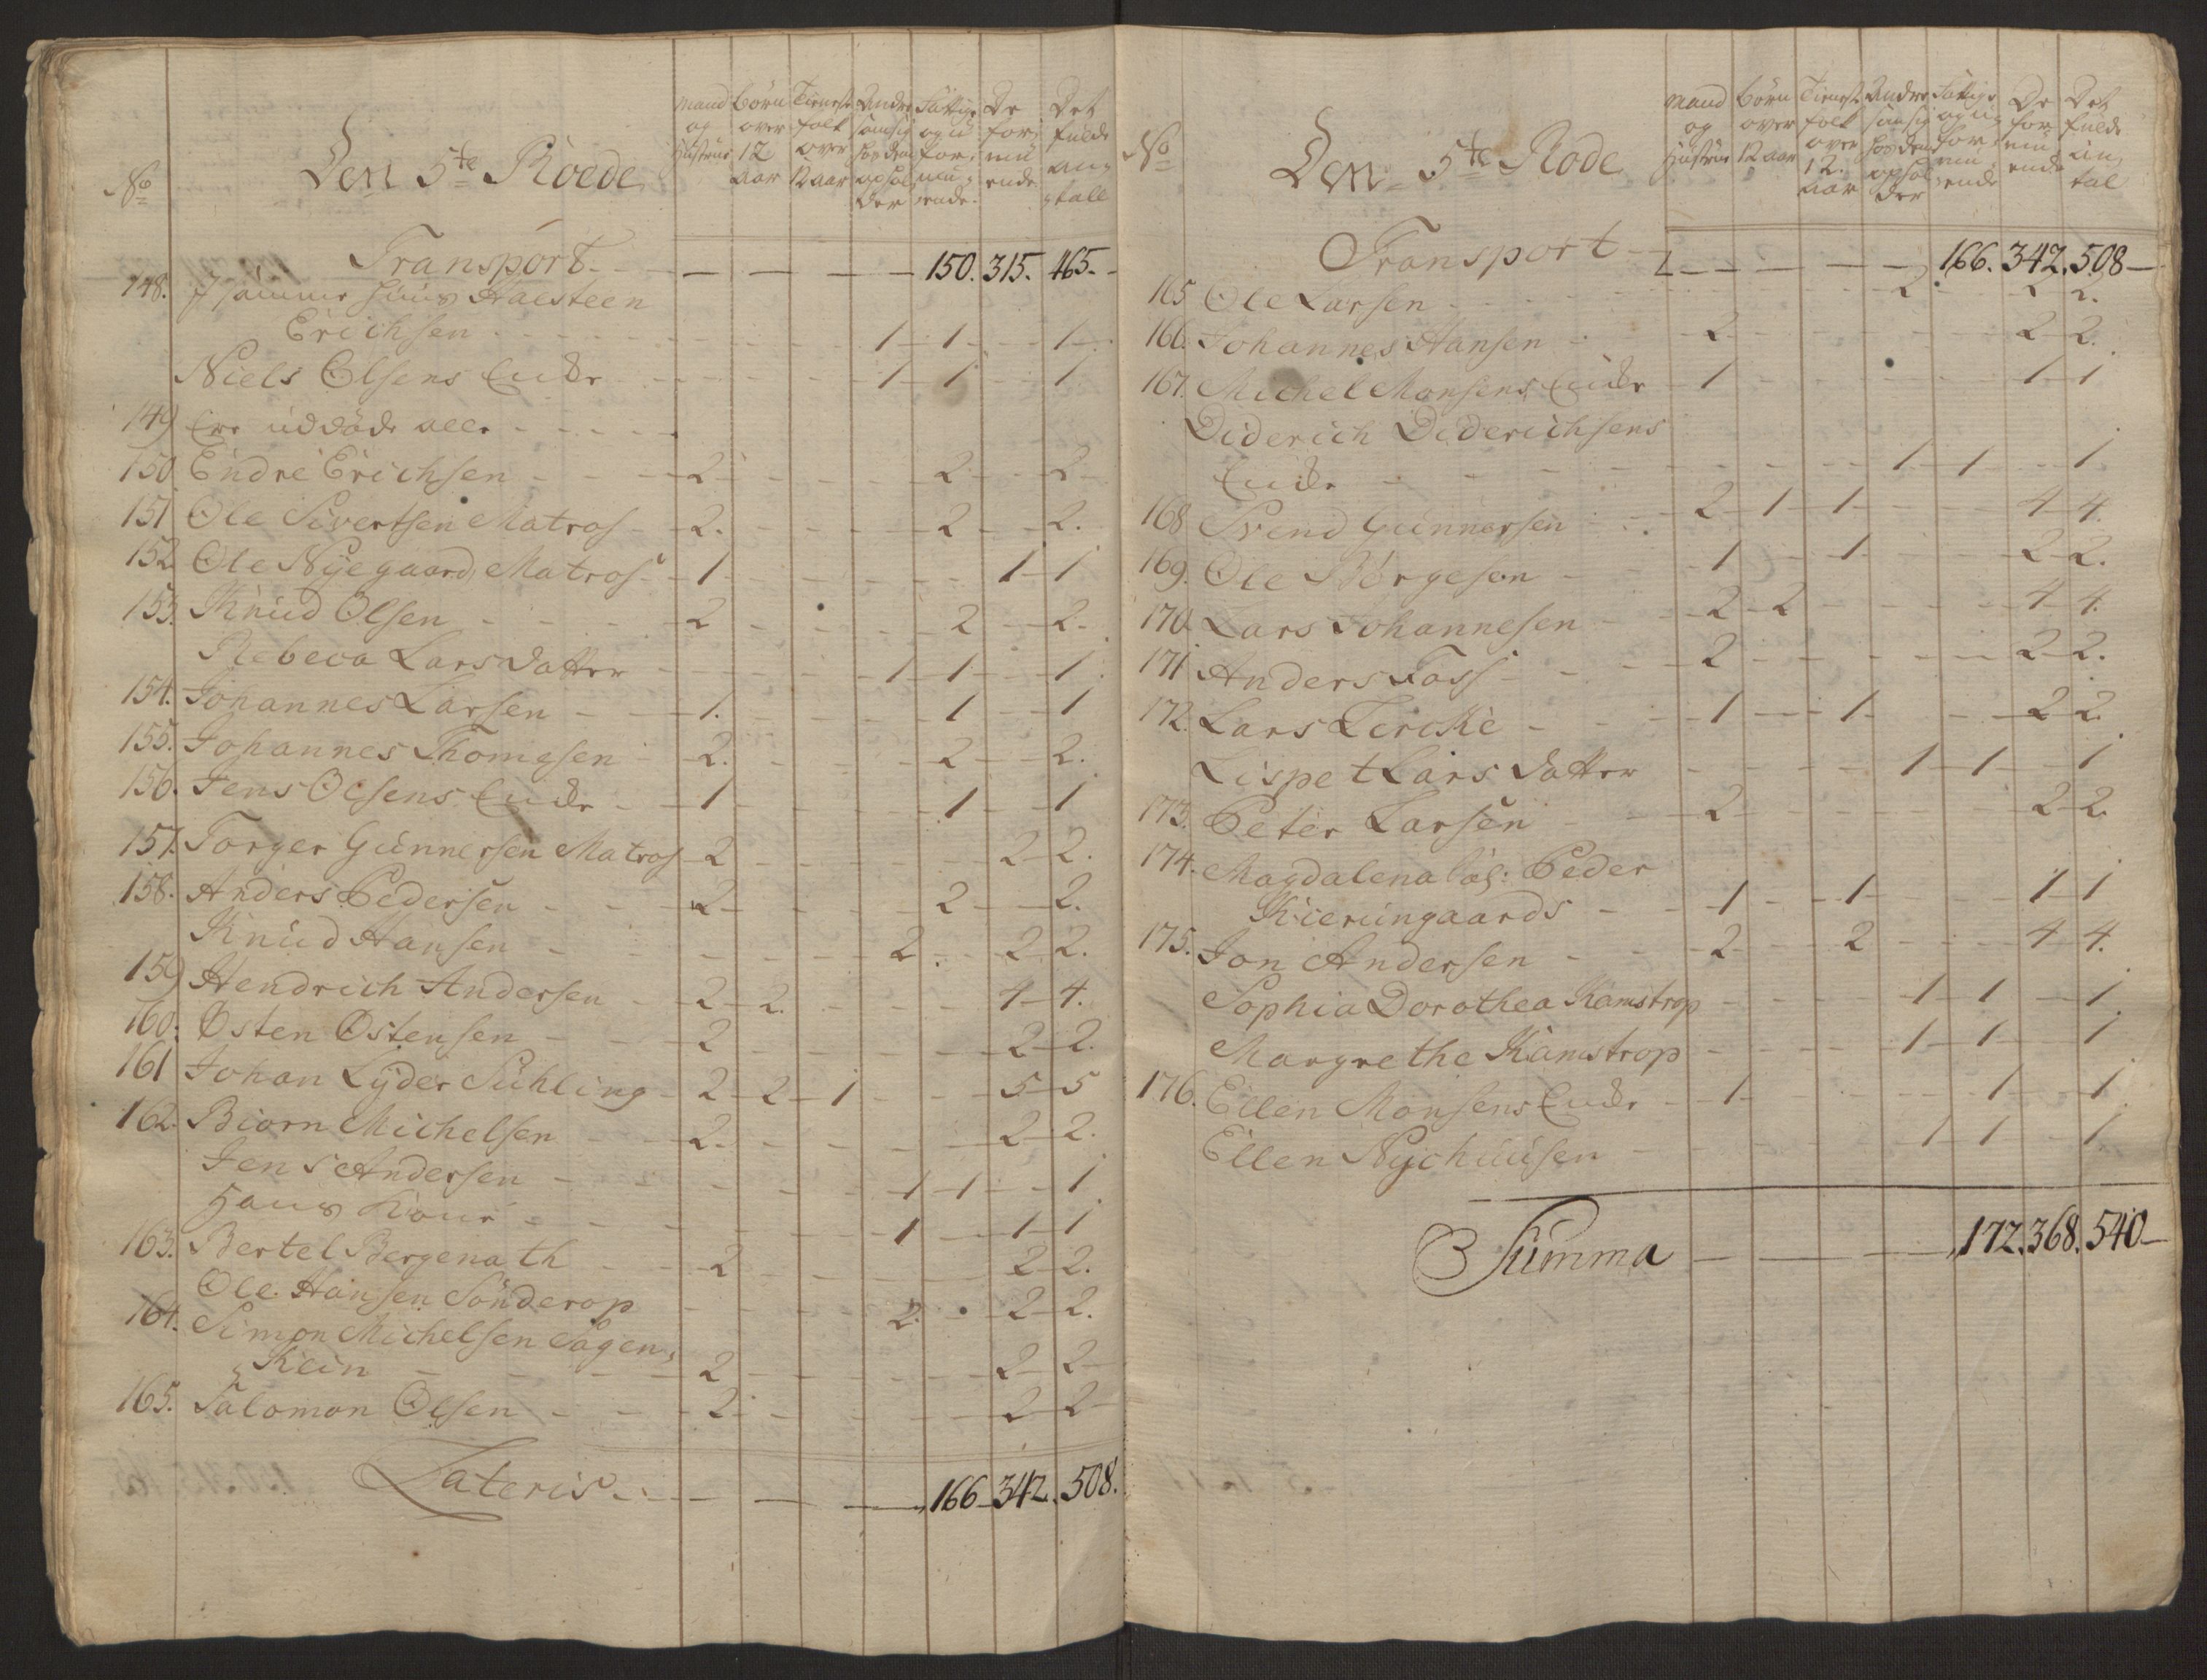 No Den 5te Roede Mand og Hustrue Börn over 12 aar Tieneste folk over 12 aar Andre som sig hos dem opholder Fattige og u formuende De formuende Det fulde antall
Transport - - - - 150. 315. 465.
148. I samme Huus Haesteen
Erichsen - - - 1 - 1 - - 1
Niels Olsens Encke - - - 1 - 1 - 1
149 Ere uddöde alle - - - -
150. Endre Erichsen - - - 2 - - - - 2 - - 2
151 Ole Sivertsen Matros - 2. - - - 2 - 2.
152 Ole Nyegaard, Matros - 1 - - - - - 1 - 1
153. Knud Olsen - - - 2 - - - - 2 - 2.
Rebeca Larsdatter - - - - 1 - 1 - - 1
154. Johannes Larsen - - 1. - - - - 1 - - 1
155. Johannes Thomesen - 2. - - - - 2 - - 2.
156. Jens Olsens Encke - 1 - - - - 1 - - 1
157. Torger Gunnersen Matros - 2 - - - - - 2 - 2.
158. Anders Pedersen - - - 2 - - - - 2 - - 2.
Knud Hansen - - - - - 2. - - 2. 2.
159 Hendrich Andersen - 2 - 2. - - - 4 - 4.
160. Osten Ostensen - - 2 - - - - - 2 - 2.
161 Johan Lyder Sühling - 2 - 2 - 1 - - - 5 - 5
162. Biorn Michelsen - - 2. - - - - - 2 - 2.
Jens Andersen - - - - - 1 - 1 - - 1
Hans - - - - 1 - - 1 - 1
163. Bertel Bergenath - - 2 - - - - 2 - 2.
Ole Hansen Sönderop - - - - 2. 2 - 2.
164. Simon Michelsen Sagen,
Klein - - - 2 - - - - 2 - 2
165. Salomon Olsen - - - 2 - - - - 2 - 2
Lateris - - - - 166 - 342. 508.
No Den 5te Rode Mand og Hustrue Börn over 12 aar Tieneste folk over 12. aar Andre som sig hos dem opholder Fattige og u formuende De formuende Det fulde antal
Transport - - - - - 166. 342. 508 -
165 Ole Larsen - - - - - 2. - 2 2.
166. Johannes Hansen - - 2 - - - - 2 - 2.
167. Michel Monsens Encke - 1 - - - - 1 - 1
Diderich Diderichsens
Encke - - - - - - 1 - 1 - - 1
168 Svend Gunnersen - - 2 - 1 - 1 - - - 4 - 4.
169. Ole Börgeson - - - 1 - - 1 - - - 2 - 2.
170. Lars Johannesen - - 2 - 2 - - - - 4 - 4.
171 Anders Foss - - - 2 - - - - - 2 - 2.
172. Lars Lercke - - - 1 - - 1 - - - 2 2.
Lispet Lars datter - - - - 1 - 1 - - 1
173. Peter Larsen - - 2 - - - - - 2 - 2.
174. Magdalena Sal: Peder
Kierungaards - - 1 - - 1 - - - 1 - 1
175. Jon Andersen - - 2 - - 2 - - - 4 - 4.
Sophia Dorothea Kamstrop - - - - 1 - 1 - - 1
Margrethe Kamstrop - - - - 1 - 1 - - 1
176. Ellen Monsens Encke - - 1 - - - - 1 - - 1
Ellen Nychuusen - - - - 1 - 1 - - 1
Summa - - - - 172. 368. 540 -